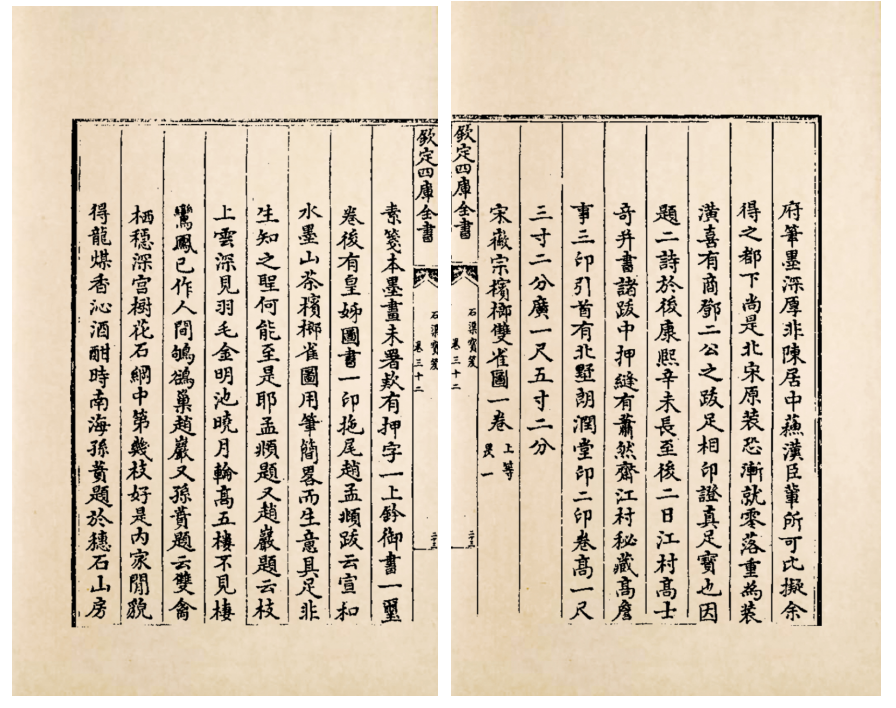 府筆墨深厚非陳居中蘓漢臣軰所可比擬余
得之都下尚是北宋原装恐漸就零落重為装
潢喜有商鄧二公之跋足相印證真足寶也因
題二詩於後康熙辛未長至後二日江村髙士
竒并書諸跋中押縫有蕭然齋江村秘藏髙詹
事三印引首有北墅朗潤堂印二印卷髙一尺
三寸二分廣一尺五寸二分
宋徽宗檳榔雙雀圖一卷 上等 昃一
欽定四庫全書
石渠寳笈
卷三十二
欽定四庫全書
石渠寳笈
卷三十二
素箋本墨畫未署欵有押字一上鈐御書一璽
卷後有皇姊圖書一印拖尾趙孟頫跋云宣和
水墨山茶檳榔雀圖用筆簡畧而生意具足非
生知之聖何能至是耶孟頫題又趙巖題云枝
上雲深見羽毛金明池曉月輪髙五樓不見棲
鸞鳳已作人間鴝鵒巢趙巖又孫蕡題云雙禽
栖穏深宫樹花石綱中第幾枝好是内家閒貌
得龍煤香沁酒酣時南海孫蕡題於穗石山房